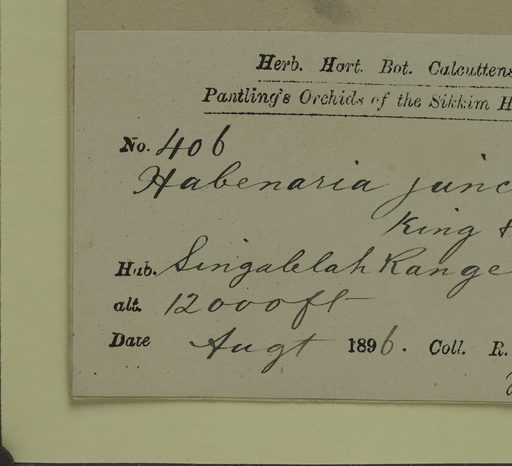 Herb. Hort. Bot. Calcuttens
Pantling's Orchids of the Sikkim H
No. 406
Habenaria junc
King &
Hab. Singalelah Range
alt. 12000 ft
Date Augt 1896. Coll. R.